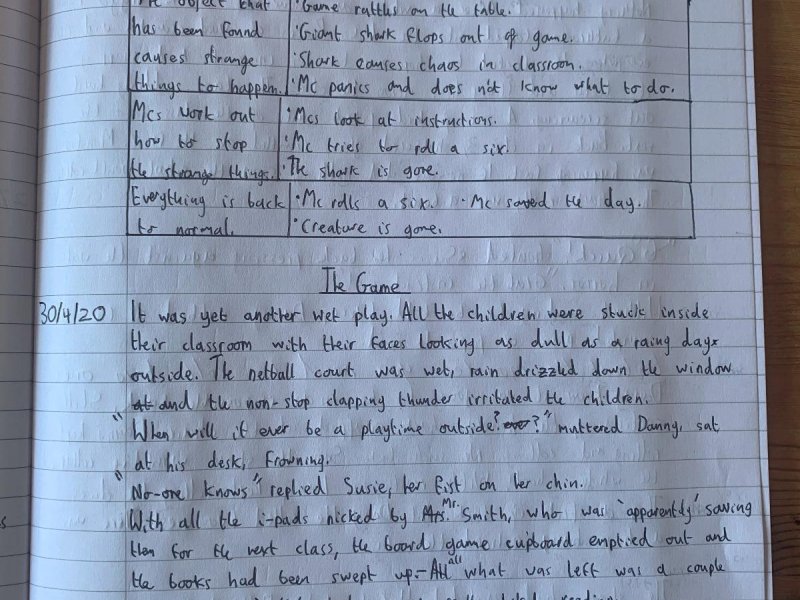 object that · Game rattles on the table.
has been found · Giant shark flops out of game.
causes strange · Shark causes chaos in classroom.
things to happen. · Mc panics and does n't know what to do.
Mcs work out · Mcs look at instructions.
how to stop · Mc tries to roll a six.
the strange things. · The shark is gone.
Everything is back · Mc rolls a six. · Mc saved the day.
to normal. · Creature is gone.
The Game
30/4/20 It was yet another wet play. All the children were stuck inside
their classroom with their faces looking as dull as a rainy day
outside. The netball court was wet, rain drizzled down the window
and the non-stop clapping thunder irritated the children.
"When will it ever be a playtime outside?" muttered Danny, sat
at his desk, frowning.
"No-one knows" replied Susie, her fist on her chin.
With all the i-pads nicked by Mr. Smith, who was 'apparently' saving
them for the next class, the board game cupboard emptied out and
the books had been swept up - all what was left was a couple